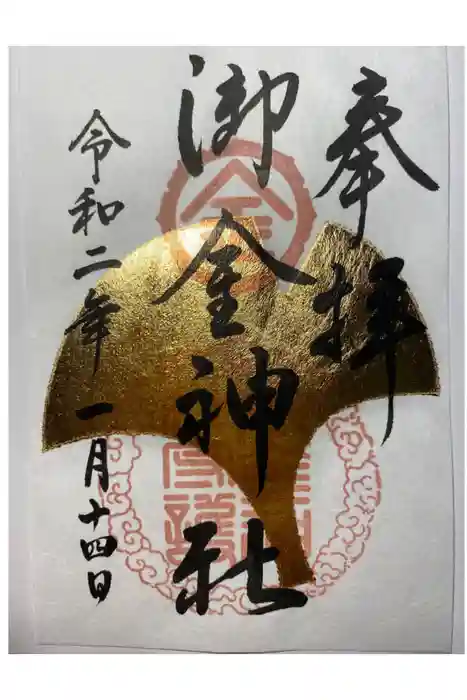 奉拝
御金神社
令和二年一月十四日
金